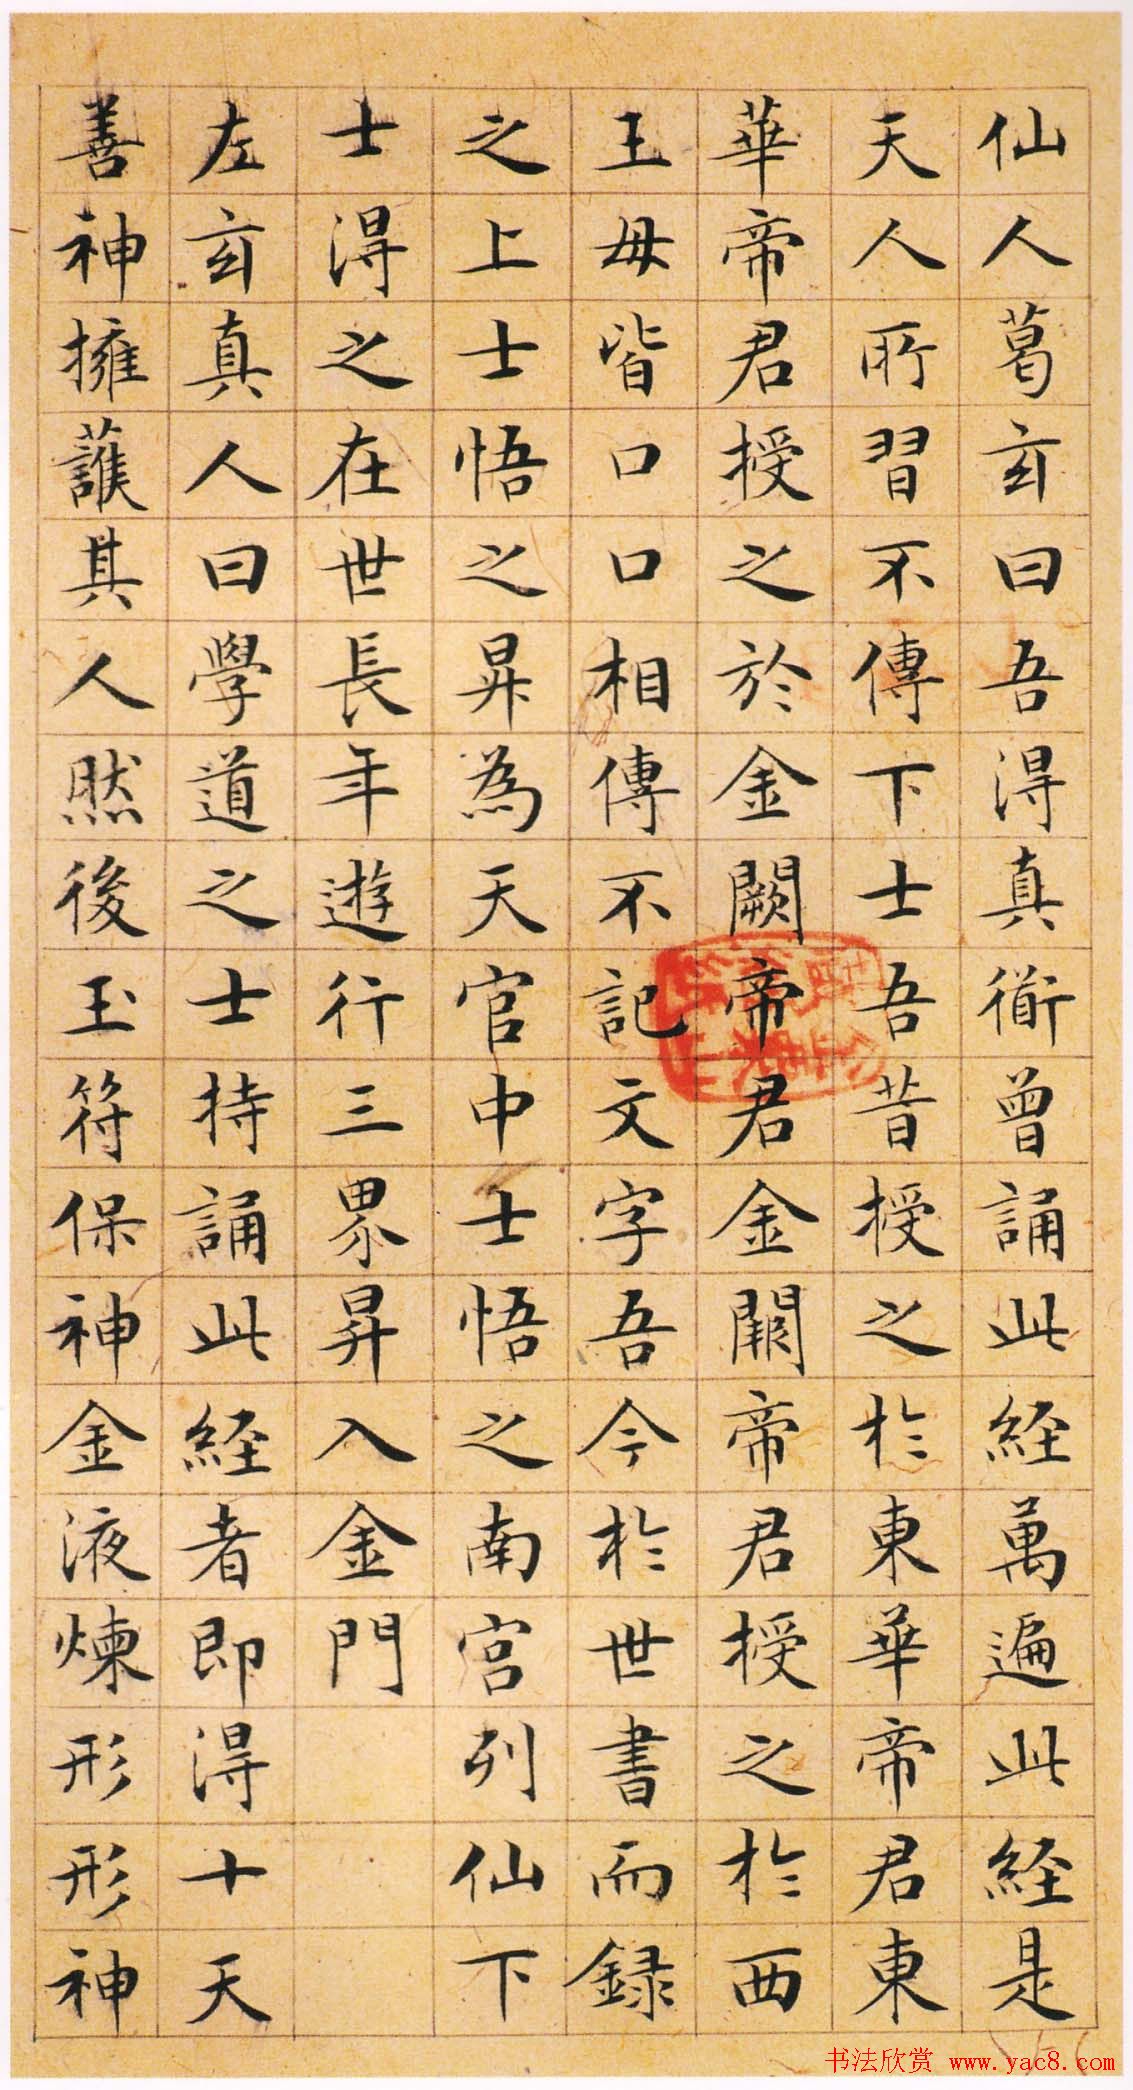 仙人葛玄曰吾得真衟曾誦此経萬遍此経是
天人所習不傳下士吾昔授之於東華帝君東
華帝君授之於金闕帝君金闕帝君授之於西
王母皆口口相傳不記文字吾今於世書而録
之上士悟之昇為天官中士悟之南宮列仙下
士得之在世長年遊行三界昇入金門
左玄真人曰學道之士持誦此経者即得十天
善神擁護其人然後玉符保神金液煉形形神
书法欣赏 www.yac8.com